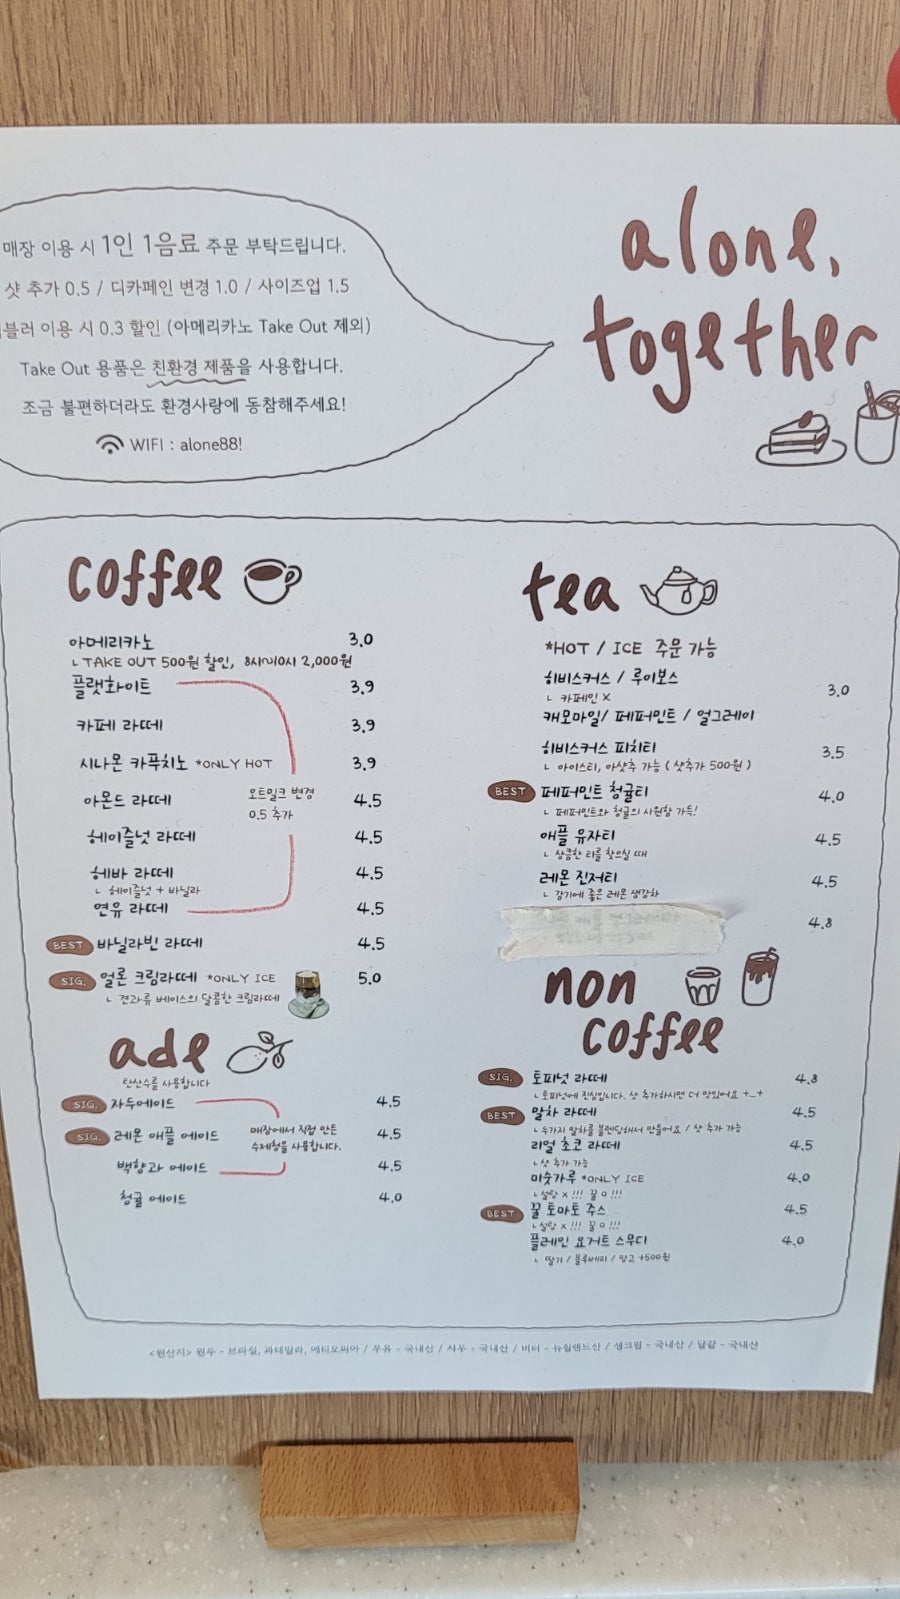 매장 이용 시 1인 1음료 주문 부탁드립니다.
샷 추가 0.5 / 디카페인 변경 1.0 / 사이즈업 1.5
블러 이용 시 0.3 할인 (아메리카노 Take Out 제외)
Take Out 용품은 친환경 제품을 사용합니다.
조금 불편하더라도 환경사랑에 동참해주세요!
WIFI : alone88!
alone,
together
coffee
아메리카노 3.0
ㄴ TAKE OUT 500원 할인, 8시~10시 2,000원
플랫화이트 3.9
카페 라떼 3.9
시나몬 카푸치노 *ONLY HOT 3.9
아몬드 라떼 4.5
오트밀크 변경
0.5 추가
헤이즐넛 라떼 4.5
헤바 라떼 4.5
ㄴ 헤이즐넛 + 바닐라
연유 라떼 4.5
BEST 바닐라빈 라떼 4.5
SIG. 얼론 크림라떼 *ONLY ICE 5.0
ㄴ 견과류 베이스의 달콤한 크림라떼
ade
탄산수를 사용합니다
SIG. 자두에이드 4.5
SIG. 레몬 애플 에이드 4.5
매장에서 직접 만든
수제청을 사용합니다.
백향과 에이드 4.5
청귤 에이드 4.0
tea
*HOT / ICE 주문 가능
히비스커스 / 루이보스
ㄴ 카페인 X
3.0
캐모마일/ 페퍼민트 / 얼그레이
히비스커스 피치티 3.5
ㄴ 아이스티, 아샷추 가능 ( 샷추가 500원 )
BEST 페퍼민트 청귤티 4.0
ㄴ 페퍼민트와 청귤의 시원함 가득!
애플 유자티 4.5
ㄴ 상큼한 티를 찾으실 때
레몬 진저티 4.5
ㄴ 감기에 좋은 레몬 생강차
4.8
non
coffee
SIG. 토피넛 라떼 4.8
ㄴ 토피넛에 진심입니다. 샷 추가하시면 더 맛있어요 +_+
BEST 말차 라떼 4.5
ㄴ 두가지 말차를 블렌딩해서 만들어요 / 샷 추가 가능
리얼 초코 라떼 4.5
ㄴ 샷 추가 가능
미숫가루 *ONLY ICE 4.0
ㄴ 설탕 X !!! 꿀 O !!!
BEST 꿀 토마토 주스 4.5
ㄴ 설탕 X !!! 꿀 O !!!
플레인 요거트 스무디 4.0
ㄴ 딸기 / 블루베리 / 망고 +500원
<원산지> 원두 - 브라질, 과테말라, 에티오피아 / 우유 - 국내산 / 자두 - 국내산 / 버터 - 뉴질랜드산 / 생크림 - 국내산 / 달걀 - 국내산